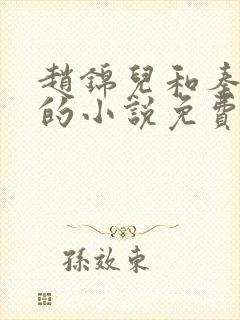 趙錦兒和秦
的小說免費
孫效東